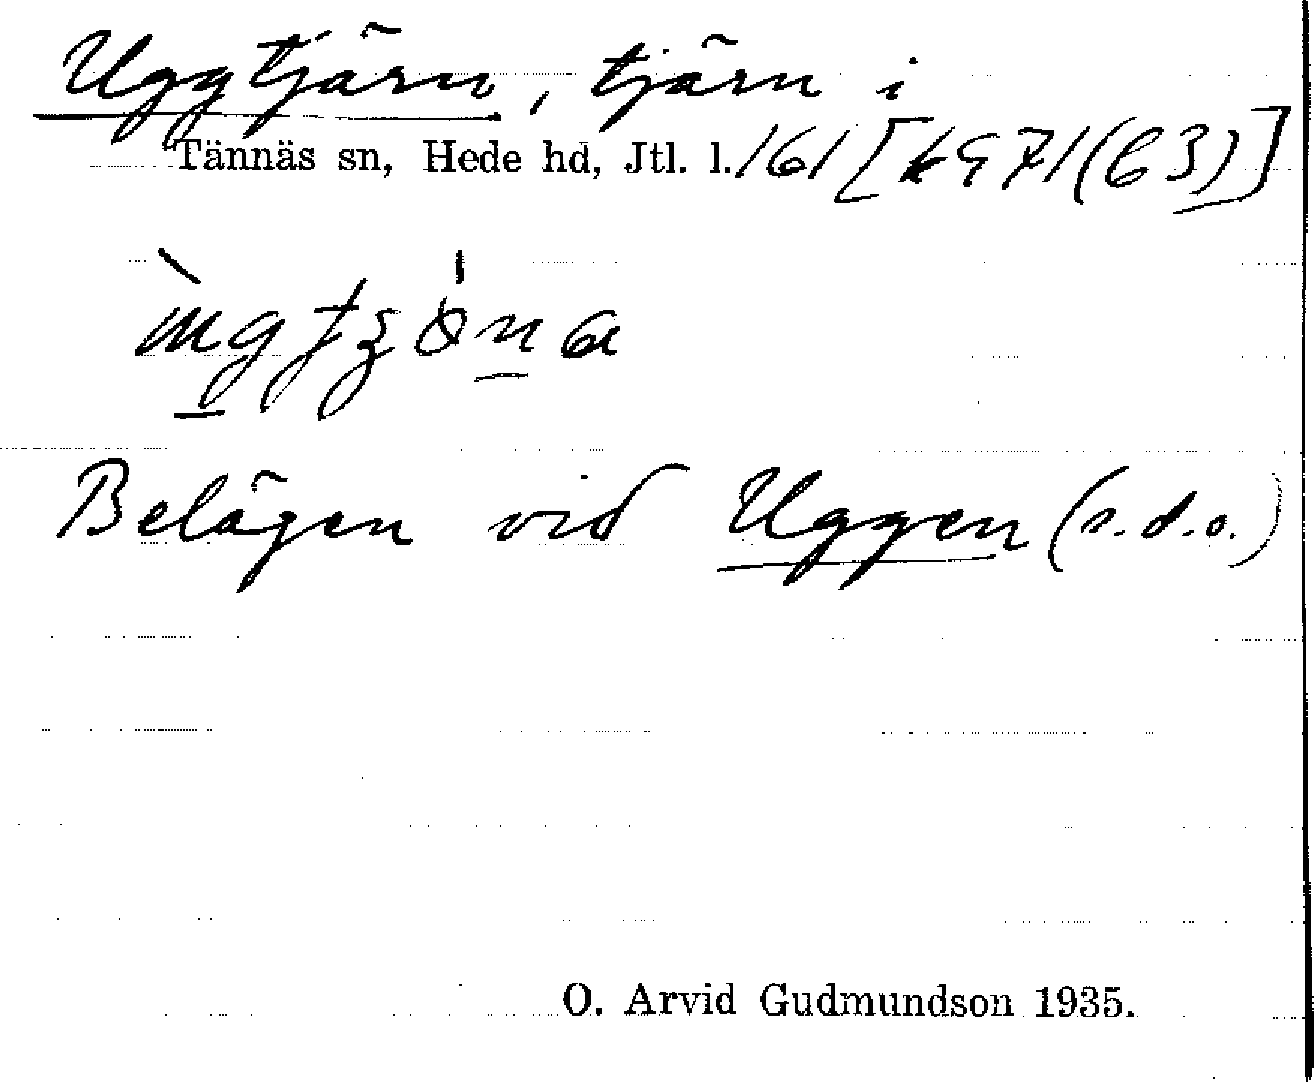 Uggtjärn, tjärn i
Tännäs sn, Hede hd, Jtl. l. 161
Belägen vid Uggen (s.d.o.)
O. Arvid Gudmundson 1935.